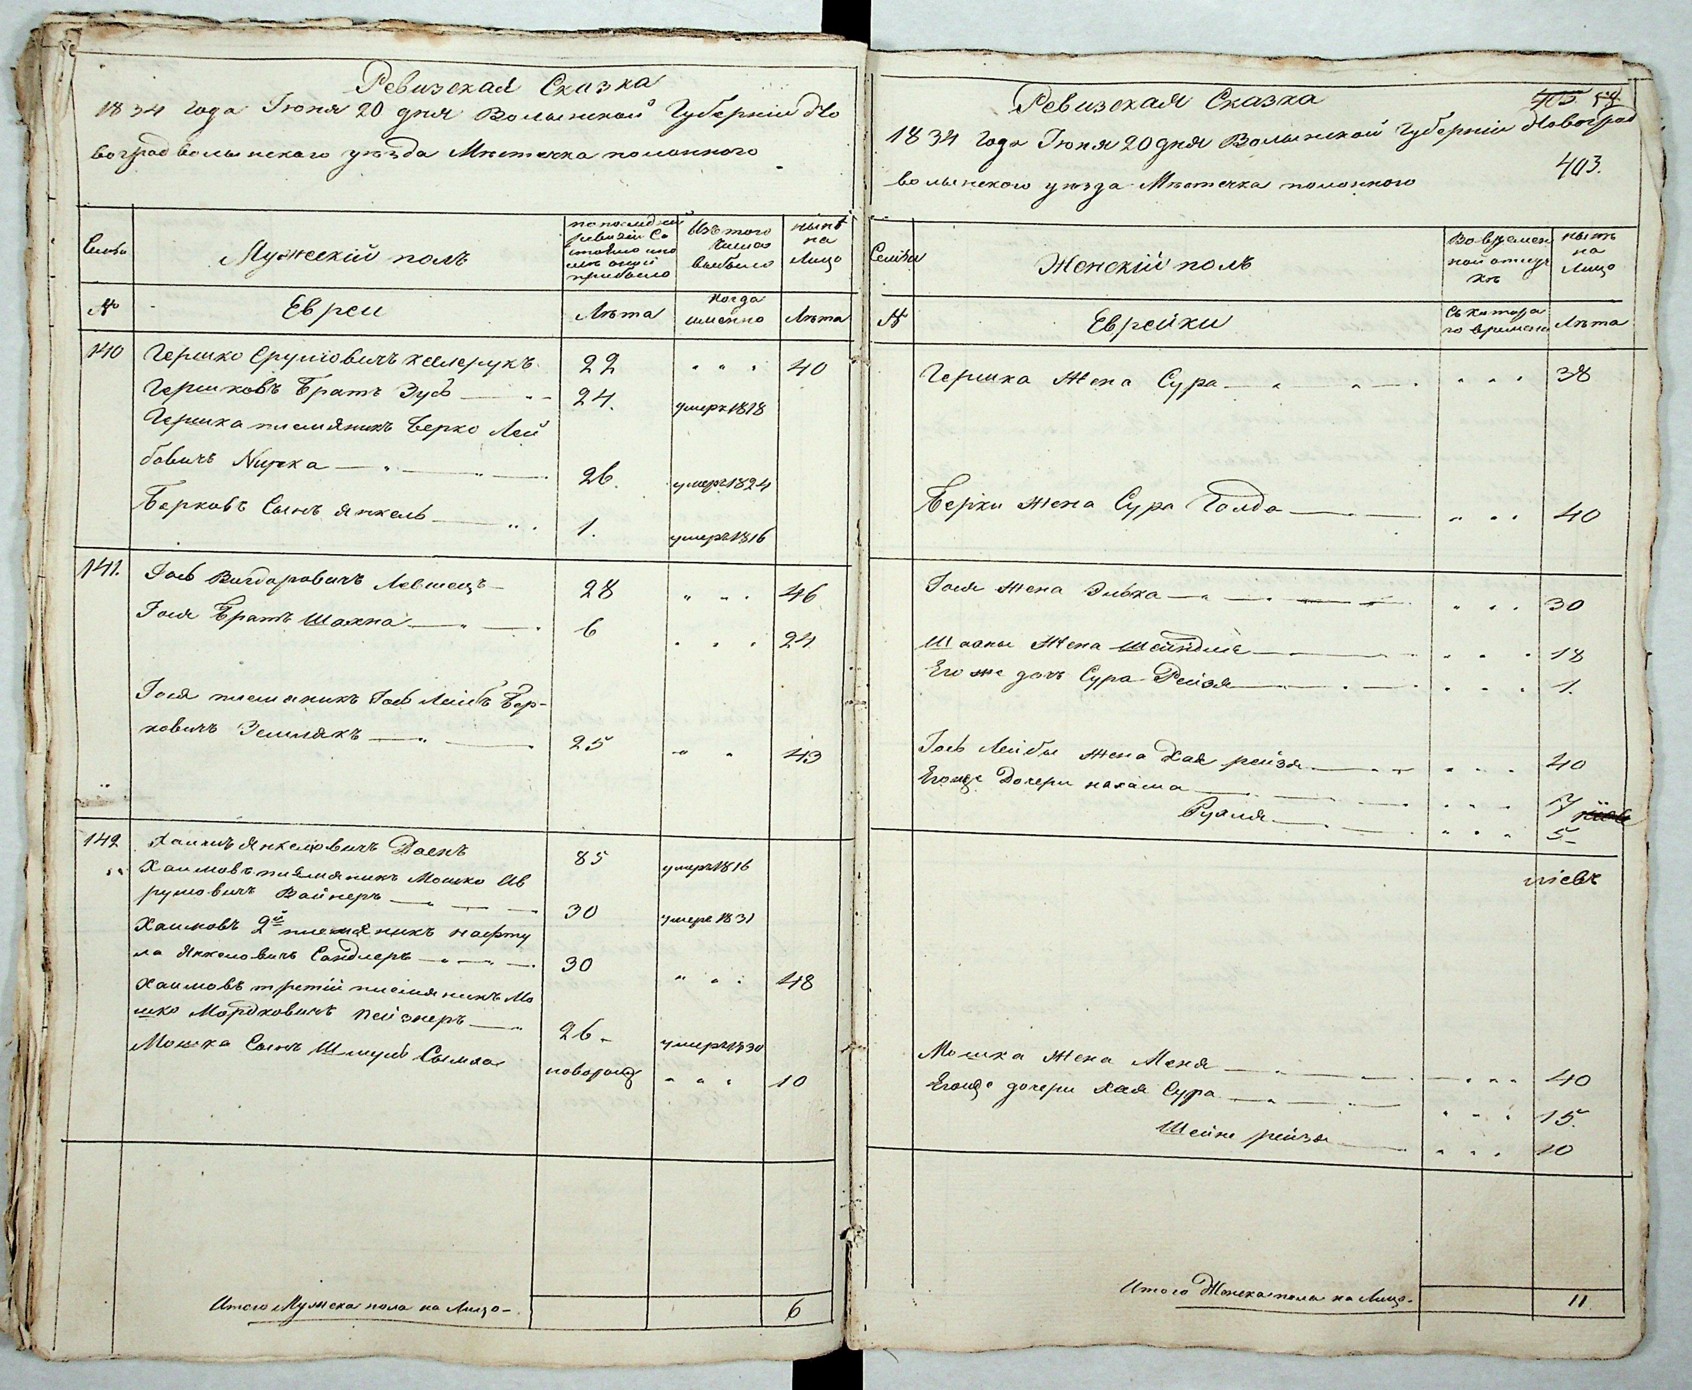 Ревизская Сказка
1834 года Іюня 20 дня Волынской Губерніи Но
воградволынскаго уѣзда Мѣстечка полоннаго
Семьи
Мужескій полъ
по последней
ревизіи Со
стояло и по
слѣ оной
прибыло
Изъ того
числа
выбыло
нынѣ
на
Лицо
№
Евреи
Лѣта
когда
именно
Лѣта
140
Гершко Срулiовичъ 22 40
Гершковъ Братъ Зусь 24. умеръ 1818
Гершка племяникъ Берко Лей
бовичъ 26. умеръ 1824
Берковъ Сынъ Янкель 1. умеръ 1816
141.
Іось Вигдоровичъ 28 46
Іося Братъ Шахна 6 24
Іося племяникъ Іось Лейбъ Бер-
ковичъ Землякъ 25 43
142
Хаимъ Янкелiовичъ Даенъ 85 умеръ 1816
Хаимовъ племяникъ Мошко Ав
румовичъ Вайнеръ 30 умеръ 1831
Хаимовъ 2й племяникъ Нафту
ла Янкелювичъ Сандлеръ 30 48
Хаимовъ третій племяникъ Мо
шко Мордковичъ Пейзнеръ 26 умеръ 1830
Мошка Сынъ Шмуль Сымха новорожд 10
Итого Мужеска пола на Лицо 6
Ревизская Сказка
1834 года Іюня 20 дня Волынской Губерніи Новоград
403.
волынского уѣзда Мѣстечка полонного
Семьи
Женскій полъ
Во времен
ной отлуч
кѣ
нынѣ
на
Лицо
№
Еврейки
Съ котора
го времени
Лѣта
Гершка Жена Сура 38
Берки Жена Сура Голда 40
Іося Жена Элька 30
Шахны Жена Шейндля 18
Его же дочь Сура Рейзя 1.
Іось Лейбы Жена Хая рейзя 40
Егоже Дочери нахама 7
Рухля 5
Мошка Жена Меня 40
Егоже дочери Хая Сура 15.
Шейне рейзя 10
Итого Женска пола на Лицо 11